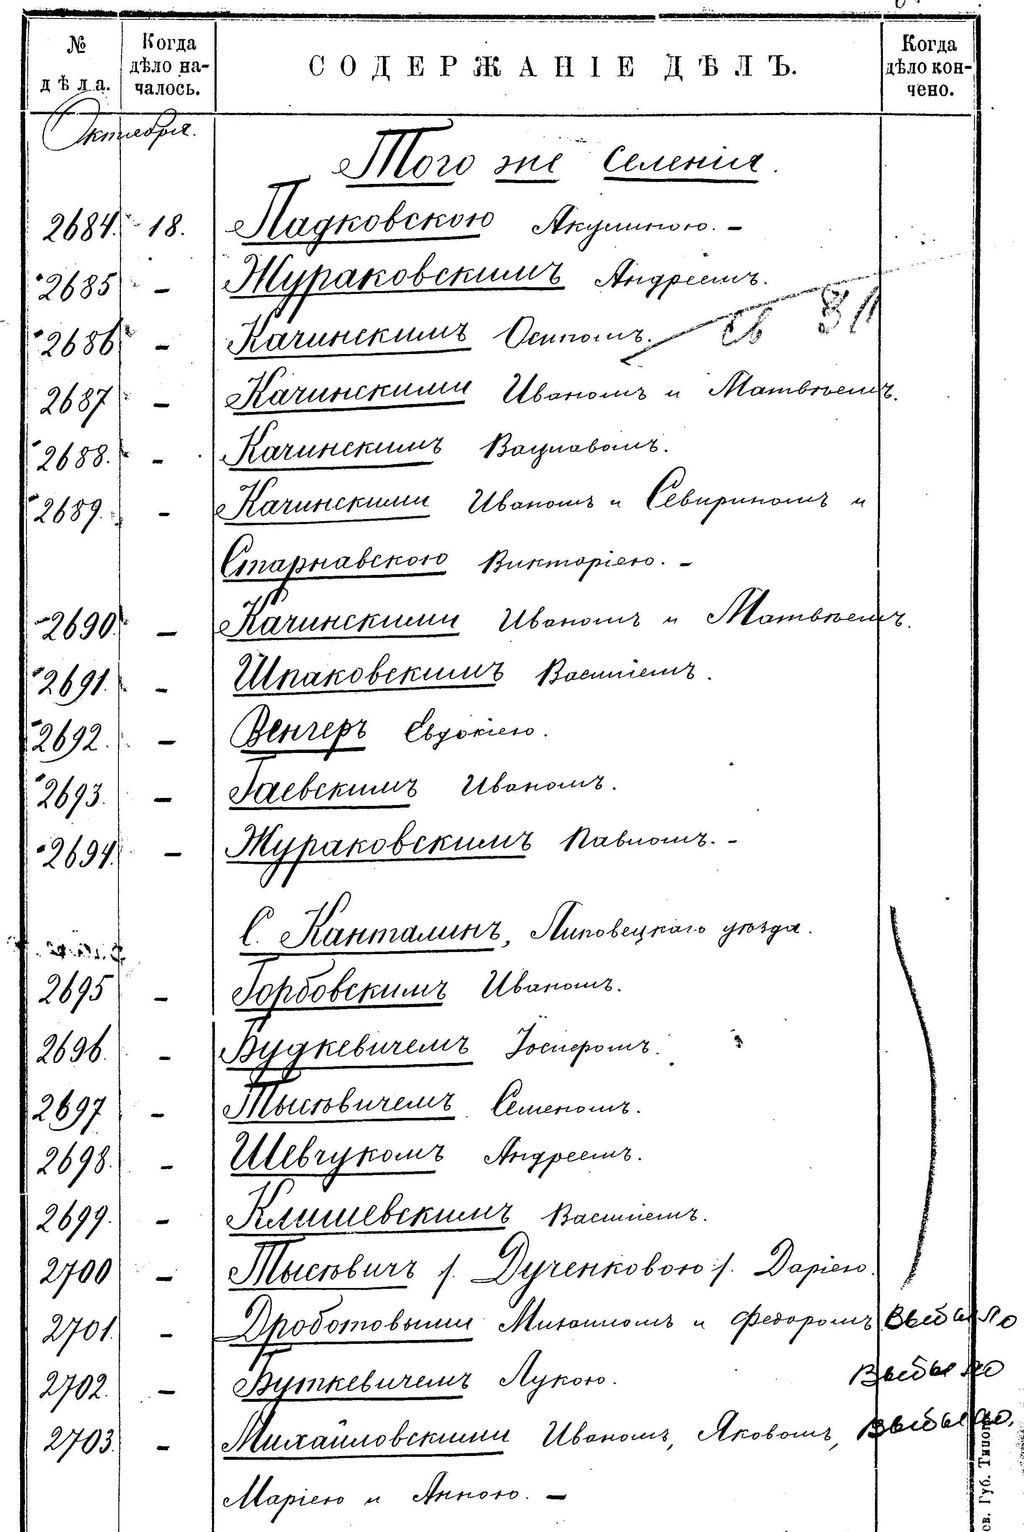 № дѣла.
Когда дѣло началось.
СОДЕРЖАНІЕ ДѢЛЪ.
Когда дѣло кончено.
Октября.
Того же селенія.
2684. 18. Падковскою Акулиною. –
2685 – Жураковскимъ Андреемъ.
2686 – Качинскимъ Осипомъ. св 311
2687 – Качинскими Иваномъ и Матвѣемъ.
2688. – Качинскимъ Вацлавомъ.
2689. – Качинскими Иваномъ и Севириномъ и
Старнавскою Викторіею. –
2690. – Качинскими Иваномъ и Матвѣемъ.
2691. – Шпаковскимъ Василіемъ.
2692. – Венгеръ Евдокіею.
2693. – Гаевскимъ Иваномъ.
2694. – Жураковскимъ Павломъ. –
С. Канталинъ, Липовецкаго уѣзда.
2695 – Горбовскимъ Иваномъ.
2696. – Будкевичемъ Іосифомъ.
2697 – Тысѣвичемъ Семеномъ.
2698. – Шевчукомъ Андреемъ.
2699. – Клишевскимъ Василіемъ.
2700 – Тысѣвичъ /. Дученковою /. Даріею.
2701. – Дроботовыми Михаиломъ и Федоромъ Выбыло
2702. – Буткевичемъ Лукою. Выбыло
2703. – Михайловскими Иваномъ, Яковомъ, Выбыло.
Маріею и Анною. –
св. Губ. Типогр